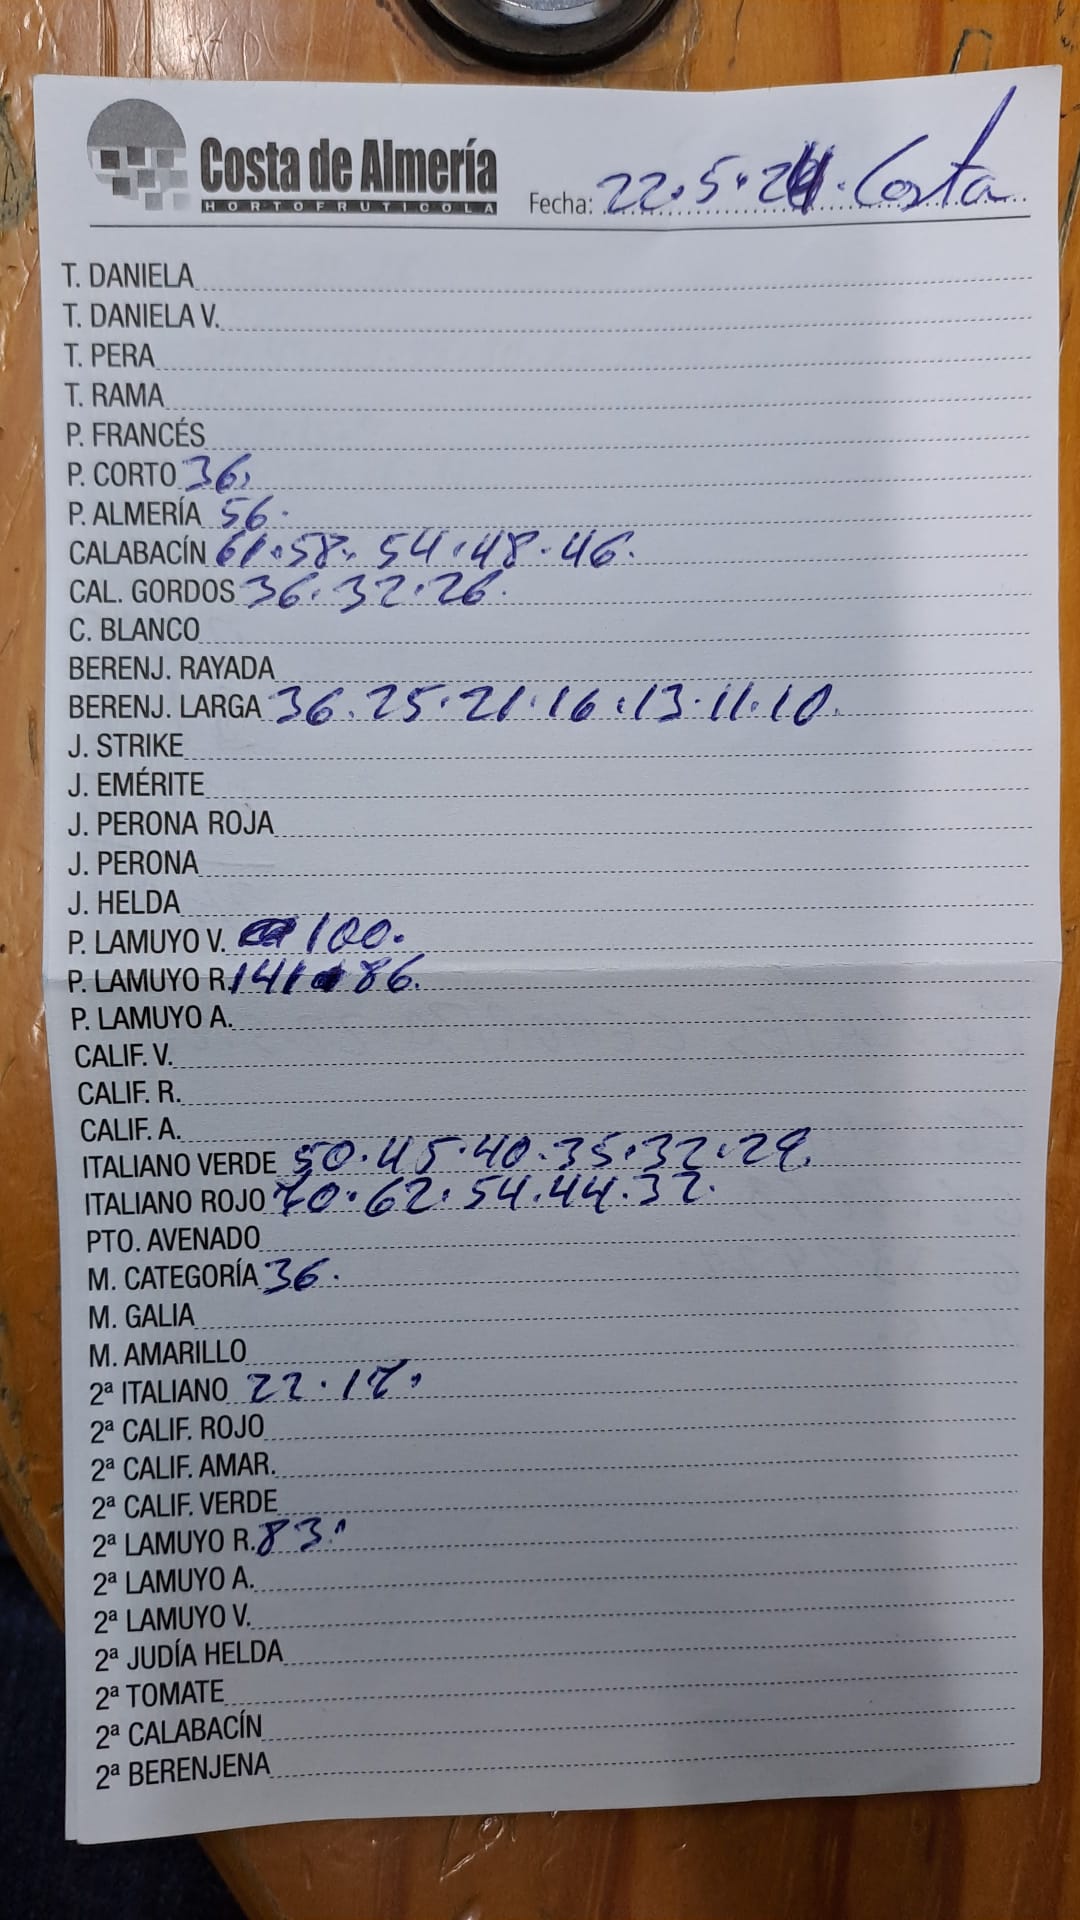 Costa de Almería
HORTOFRUTICOLA
Fecha: 22.5.24. Costa
T. DANIELA
T. DANIELA V.
T. PERA
T. RAMA
P. FRANCÉS
P. CORTO 36.
P. ALMERÍA 56.
CALABACÍN 61.58. 54.48.46.
CAL. GORDOS 36.32.26.
C. BLANCO
BERENJ. RAYADA
BERENJ. LARGA 36.25.21.16.13.11.10.
J. STRIKE
J. EMÉRITE
J. PERONA ROJA
J. PERONA
J. HELDA
P. LAMUYO V. 100.
P. LAMUYO R. 141 86.
P. LAMUYO A.
CALIF. V.
CALIF. R.
CALIF. A.
ITALIANO VERDE 50.45.40.35.32.29.
ITALIANO ROJO 70.62.54.44.32.
PTO. AVENADO
M. CATEGORÍA 36.
M. GALIA
M. AMARILLO
2ª ITALIANO 22.
2ª CALIF. ROJO
2ª CALIF. AMAR.
2ª CALIF. VERDE
2ª LAMUYO R. 83.
2ª LAMUYO A.
2ª LAMUYO V.
2ª JUDÍA HELDA
2ª TOMATE
2ª CALABACÍN
2ª BERENJENA